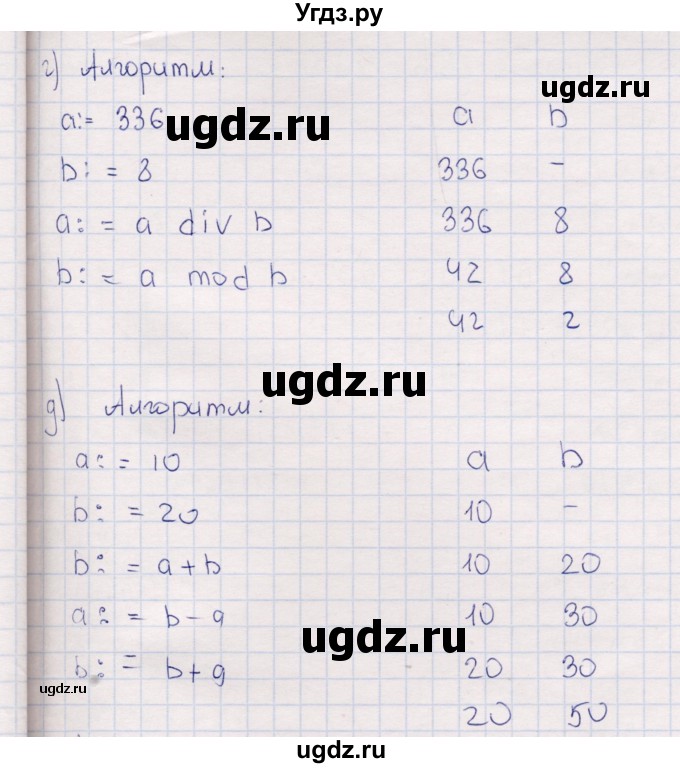 Угдз.ру
г) Алгоритм:
ugdz.ru
a:= 336 a b
ugdz.ru
b: = 8 336 -
a: = a div b 336 8
b: = a mod b 42 8
42 2
ugdz.ru
д) Алгоритм:
a: = 10 a b
b: = 20 10 -
b: = a+b 10 20
a: = b-a 10 30
ugdz.ru
b: = b+a 20 30
ugdz.ru
20 50
ugdz.ru